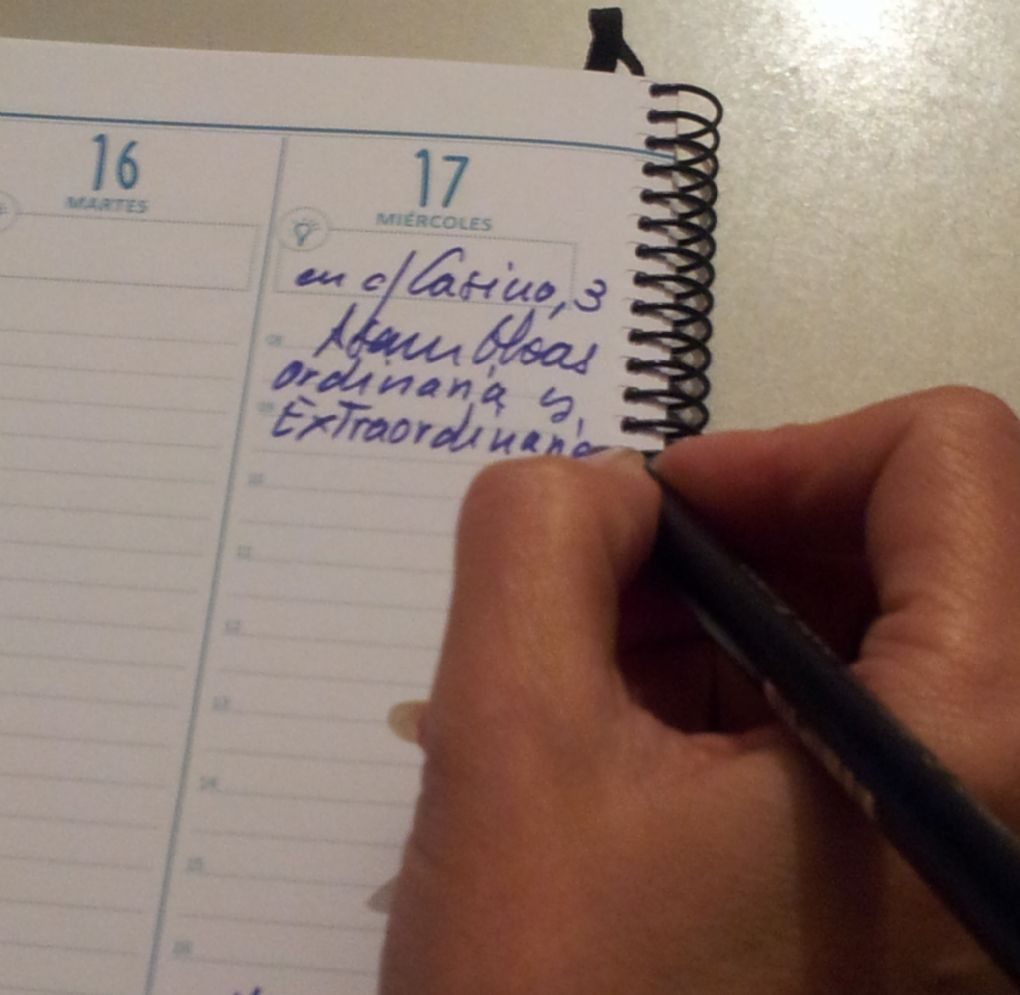 16
MARTES
17
MIÉRCOLES
en c/ Casino, 3
Asambleas
ordinaria y
Extraordinaria
10
11
12
13
14
15
16